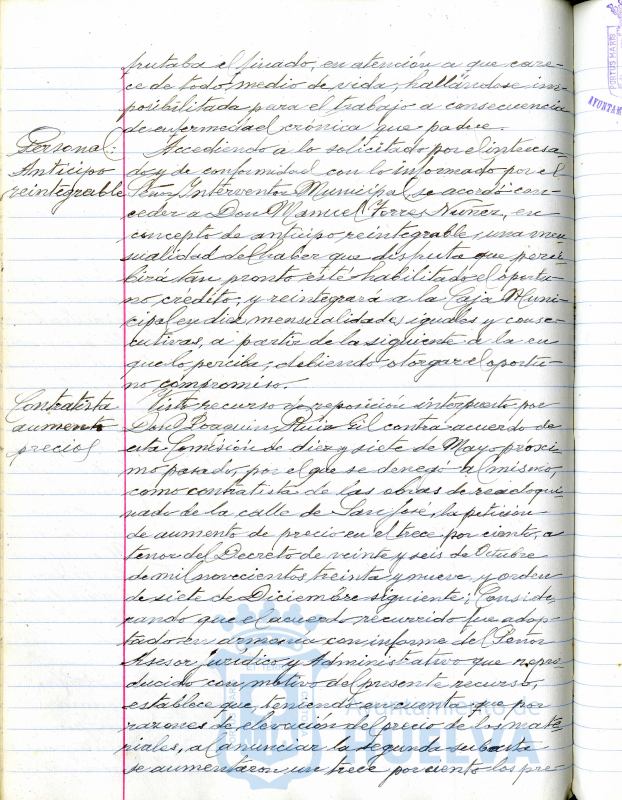 frutaba el finado, en atención a que care-
ce de todo medio de vida, hallándose im-
posibilitada para el trabajo a consecuencia
de enfermedad crónica que padece.
Personal:
Anticipo
reintegrable
Accediendo a lo solicitado por el interesa-
do y de conformidad con lo informado por el
Señor Interventor Municipal se acordó con-
ceder a Don Manuel Torres Nuñez, en
concepto de anticipo reintegrable, una men-
sualidad del haber que disfruta que perci-
birá tan pronto esté habilitado el oportu-
no crédito; y reintegrará a la Caja Muni-
cipal en diez mensualidades iguales y conse-
cutivas, a partir de la siguiente a la en
que lo perciba; debiendo otorgar el oportu-
no compromiso.
Contratista
aumento
precios
Visto recurso de reposición interpuesto por
Don Joaquin Ruiz Gil contra acuerdo de
esta Comisión de diez y siete de Mayo próxi-
mo pasado, por el que se denegó al mismo,
como contratista de las obras de readoqui-
nado de la calle de San José, la petición
de aumento de precio en el trece por ciento, a
tenor del Decreto de veinte y seis de Octubre
de mil novecientos treinta y nueve y orden
de siete de Diciembre siguiente; Conside-
rando que el acuerdo recurrido fue adop-
tado en armonia con informe del Señor
Asesor jurídico y Administrativo que repro-
ducido con motivo del presente recurso,
establece que, teniendo en cuenta que por
razones de elevación del precio de los mate-
riales, al anunciar la segunda subasta
se aumentaron un trece por ciento los pre-
PORTUS MARIS
AYUNTAM
Ayuntamiento de
HUELVA